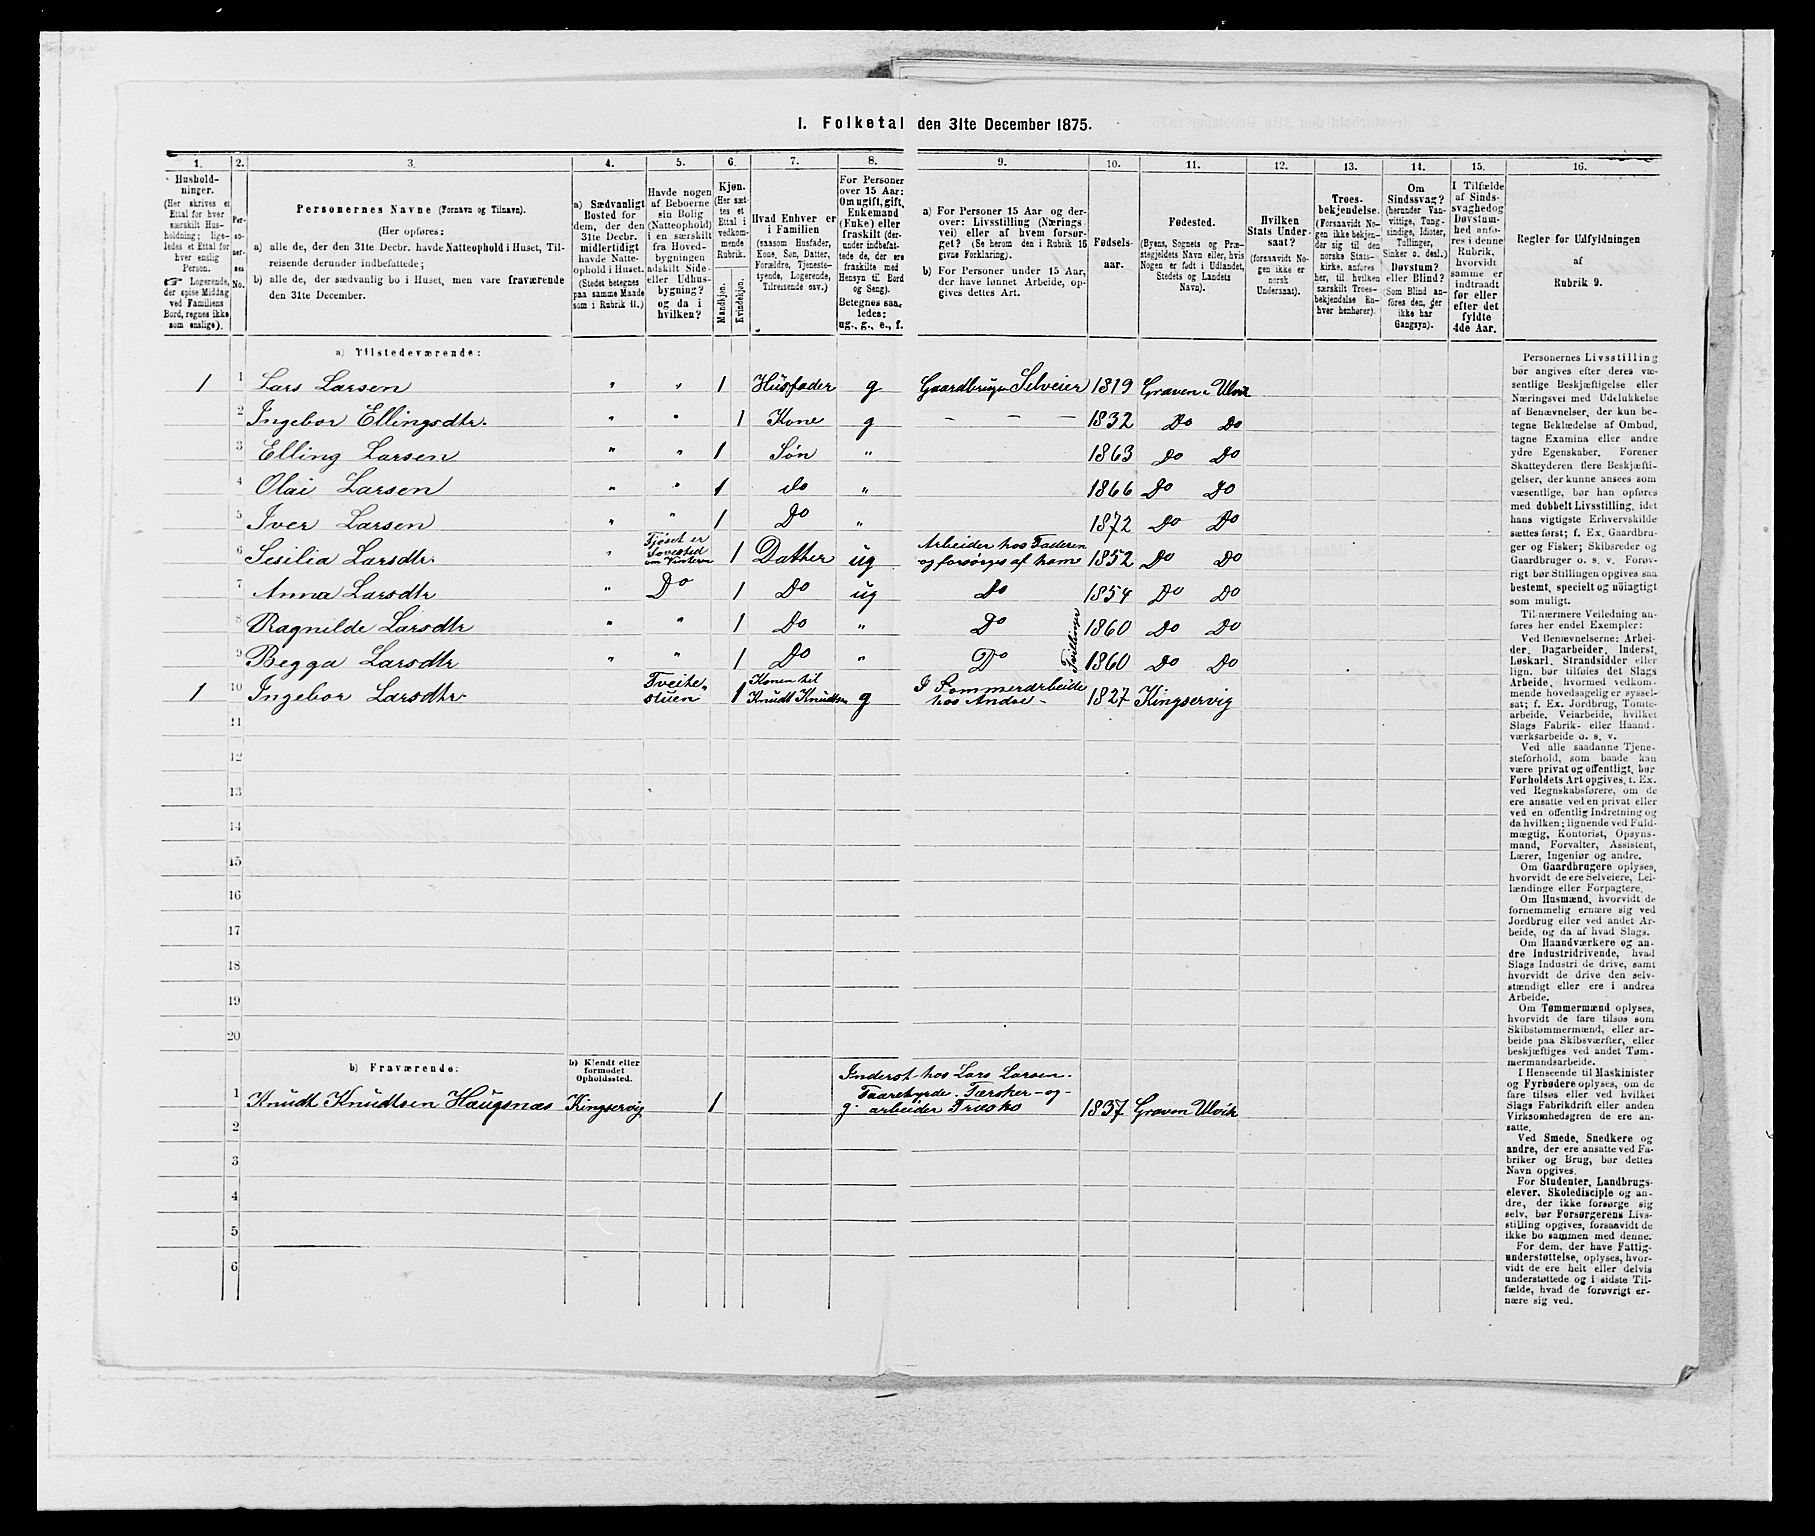 I. Folketal den 31te December 1875.
1. 2. 3. 4. 5. 6. 7. 8. 9. 10. 11. 12. 13. 14. 15. 16.
Hushold-
ninger.
(Her skrives et
Ettal for hver
særskilt Hus-
holdning; lige-
ledes et Ettal for
hver enslig
Person.
☞ Logerende,
der spise Middag
ved Familiens
Bord, regnes ikke
som enslige).
Per-
so-
ner-
nes
No.
Personernes Navne (Fornavn og Tilnavn).
(Her opføres:
a) alle de, der den 31te Decbr. havde Natteophold i Huset, Til-
reisende derunder indbefattede;
b) alle de, der sædvanlig bo i Huset, men vare fraværende
den 31te December.
a) Sædvanligt
Bosted for
dem, der den
31te Decbr.
midlertidigt
havde Natte-
ophold i Huset.
(Stedet betegnes
paa samme Maade
som i Rubrik 11.)
Havde nogen
af Beboerne
sin Bolig
(Natteophold)
i en særskilt
fra Hoved-
bygningen
adskilt Side-
eller Udhus-
bygning?
og da i
hvilken?
Kjøn.
(Her sæt-
tes et
Ettal i
vedkom-
mende
Rubrik.
Mandkjøn.
Kvindekjøn.
Hvad Enhver er
i Familien
(saasom Husfader,
Kone, Søn, Datter,
Forældre, Tjeneste-
tyende, Logerende,
Tilreisende osv.)
For Personer
over 15 Aar:
Om ugift, gift,
Enkemand
(Enke) eller
fraskilt (der-
under indbefat-
tede de, der ere
fraskilte med
Hensyn til Bord
og Seng).
Betegnes saa-
ledes:
ug., g., e., f.
a) For Personer 15 Aar og der-
over: Livsstilling (Nærings-
vei) eller af hvem forsør-
get? (Se herom den i Rubrik 16
givne Forklaring).
b) For Personer under 15 Aar,
der have lønnet Arbeide, op-
gives dettes Art.
Fødsels-
aar.
Fødested.
(Byens, Sognets og Præ-
stegjeldets Navn eller, hvis
Nogen er født i Udlandet,
Stedets og Landets
Navn).
Hvilken
Stats Under-
saat?
(forsaavidt No-
gen ikke er
norsk
Undersaat).
Troes-
bekjendelse.
(Forsaavidt No-
gen ikke bekjen-
der sig til den
norske Stats-
kirke, anføres
her, til hvilken
særskilt Troes-
bekjendelse En-
hver henhører).
Om
Sindssvag?
(herunder Van-
vittige, Tung-
sindige, Idioter,
Tullinger,
Sinker o. desl.)
Døvstum?
eller Blind?
(Som Blind an-
føres den, der
ikke har
Gangsyn).
I Tilfælde
af Sinds-
svaghed og
Døvstum-
hed anfø-
res i denne
Rubrik,
hvorvidt
samme er
indtraadt
før eller
efter det
fyldte
4de Aar.
Regler for Udfyldningen
af
Rubrik 9.
a) Tilstedeværende:
1 1 Lars Larsen " " 1 Husfader g Gaardbruger Selveier 1819 Graven i Ulvik
2 Ingebor Ellingsdtr. " " 1 Kone g — — — 1832 Do Do
3 Elling Larsen " " 1 Søn " 1863 Do Do
4 Olai Larsen " " 1 do " 1866 Do Do
5 Iver Larsen " " 1 Do " 1872 Do Do
6 Sesilia Larsdtr. " Fjøset er Sovested om Vintern 1 Datter ug Arbeider hos Faderen og forsørges af ham 1852 Do Do
7 Anna Larsdtr " Do 1 Do ug Do 1854 Do Do
8 Ragnilde Larsdtr " " 1 Do " Do Tvillinger 1860 Do Do
9 Begga Larsdtr " " 1 Do " Do 1860 Do Do
1 10 Ingebor Larsdtr. Tveite- stuen 1 Konen til Knudt Knudtsen g I Sommerarbeide hos Andre - 1827 Kingservig
11
12
13
14
15
16
17
18
19
20
b) Fraværende:
b) Kjendt eller
formodet
Opholdssted.
1 Knudt Knudtsen Haugsnæs Kingservig 1 g. Inderst hos Lars Larsen. Faarehyrde. Tærsker - og - arbeider Træsko 1837 Graven Ulvik
2
3
4
5
6
Personernes Livsstilling
bør angives efter deres væ-
sentlige Beskjæftigelse eller
Næringsvei med Udelukkelse
af Benævnelser, der kun be-
tegne Beklædelse af Ombud,
tagne Examina eller andre
ydre Egenskaber. Forener
Skatteyderen flere Beskjæfti-
gelser, der kunne ansees som
væsentlige, bør han opføres
med dobbelt Livsstilling, idet
hans vigtigste Erhvervskilde
sættes først; f. Ex. Gaardbru-
ger og Fisker; Skibsreder og
Gaardbruger o. s. v. Forøv-
rigt bør Stillingen opgives saa
bestemt, specielt og nöiagtigt
som muligt.
Til nærmere Veiledning an-
føres her endel Exempler:
Ved Benævnelserne: Arbei-
der, Dagarbeider, Inderst,
Løskarl, Strandsidder eller
lign. bør tilføies det Slags
Arbeide, hvormed vedkom-
mende hovedsagelig er syssel-
sat; f. Ex. Jordbrug, Tomte-
arbeide, Veiarbeide, hvilket
Slags Fabrik- eller Haand-
værksarbeide o. s. v.
Ved alle saadanne Tjene-
steforhold, som baade kan
være privat og offentligt, bør
Forholdets Art opgives, t. Ex.
ved Regnskabsførere, om de
ere ansatte ved en privat eller
ved en offentlig Indretning og
da hvilken; lignende ved Fuld-
mægtig, Kontorist, Opsyns-
mand, Forvalter, Assistent,
Lærer, Ingeniør og andre.
Om Gaardbrugere oplyses,
hvorvidt de ere Selveiere, Lei-
lændinge eller Forpagtere.
Om Husmænd, hvorvidt de
fornemmelig ernære sig ved
Jordbrug eller ved andet Ar-
beide, og da af hvad Slags.
Om Haandværkere og an-
dre Industridrivende, hvad
Slags Industri de drive, samt
hvorvidt de drive den selv-
stændigt eller ere i andres
Arbeide.
Om Tømmermænd oplyses,
hvorvidt de fare tilsøs som
Skibstømmermænd, eller ar-
beide paa Skibsværfter, eller
beskjæftiges ved andet Tøm-
mermandsarbeide.
I Henseende til Maskinister
og Fyrbødere oplyses, om de
fare tilsøs eller ved hvilket
Slags Fabrikdrift eller anden
Virksomhedsgren de ere an-
satte.
Ved Smede, Snedkere og
andre, der ere ansatte ved Fa-
briker og Brug, bør dettes
Navn opgives.
For Studenter, Landbrugs-
elever, Skoledisciple og an-
dre, der ikke forsørge sig
selv, bør Forsørgerens Livs-
stilling opgives, forsaavidt de
ikke bo sammen med denne.
For dem, der have Fattig-
understøttelse, oplyses, hvor-
vidt de ere helt eller delvis
understøttede og i sidste Til-
fælde, hvad de forøvrigt er-
nære sig ved.